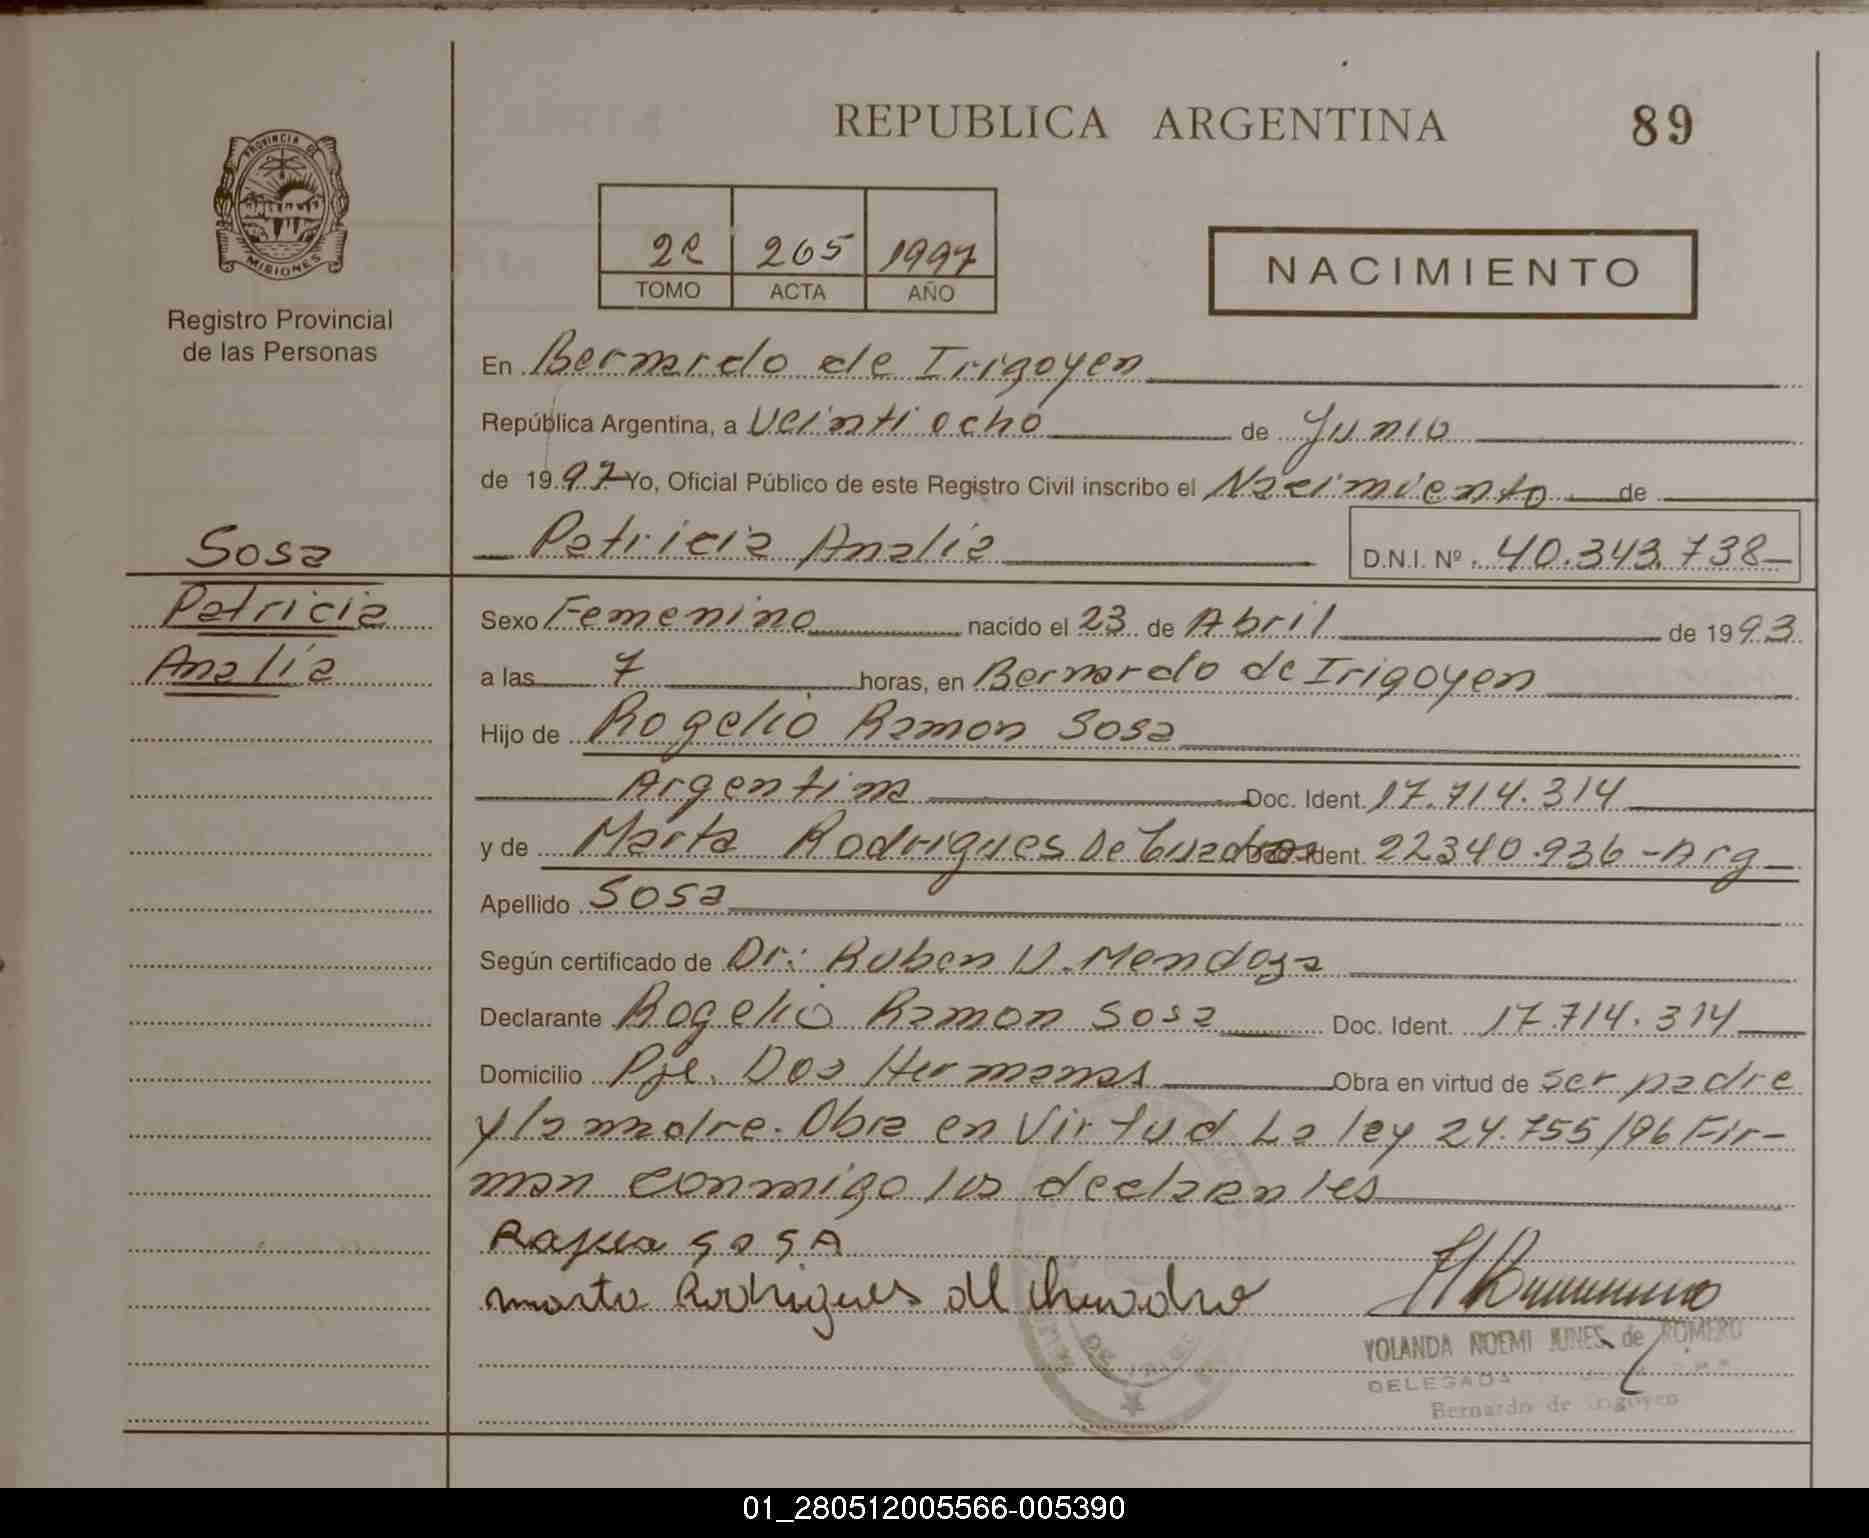 REPUBLICA ARGENTINA 89
PROVINCIA DE
MISIONES
Registro Provincial
de las Personas
2e 265 1997
TOMO ACTA AÑO
NACIMIENTO
En Bernardo de Irigoyen
República Argentina, a Veintiocho de Junio
de 1997 Yo, Oficial Público de este Registro Civil inscribo el Nacimiento de
Patricia Analia D.N.I. Nº 40.343.738
Sosa
Patricia
Analía
Sexo Femenino nacido el 23 de Abril de 1993
a las 7 horas, en Bernardo de Irigoyen
Hijo de Rogelio Ramon Sosa
Argentina Doc. Ident. 17.714.314
y de Marta Rodrigues De Cuadro Doc. Ident. 22340.936 - Arg
Apellido Sosa
Según certificado de Dr: Ruben D. Mendoza
Declarante Rogelio Ramon Sosa Doc. Ident. 17.714.314
Domicilio Pje. Dos Hermanas Obra en virtud de ser padre
y la madre. Obra en Virtud La ley 24.755/96 Fir-
man conmigo los declarantes
SOSA
marta Rodrigues
YOLANDA NOEMI de ROMERO
DELEGADA
Bernardo de Irigoyen
01_280512005566-005390